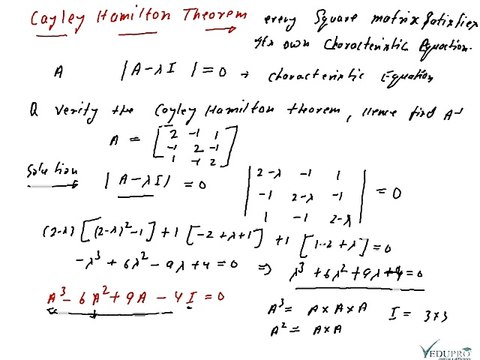 Cayley Hamilton Theorem → every Square matrix Satisfies
its own Characteristic Equation.
A |A-λI| = 0 → Characteristic Equation
Q Verify the Cayley Hamilton theorem, Hence find A⁻¹
A = [2 -1 1
-1 2 -1
1 -1 2]
Solution |A-λI| = 0
|2-λ -1 1
-1 2-λ -1
1 -1 2-λ| = 0
(2-λ)[(2-λ)²-1] + 1[-2+λ+1] + 1[1-2+λ] = 0
-λ³ + 6λ² - 9λ + 4 = 0 ⇒ λ³ + 6λ² + 9λ + 4 = 0
A³ - 6A² + 9A - 4I = 0
A³ = A × A × A I = 3×3
A² = A × A
VEDUPRO